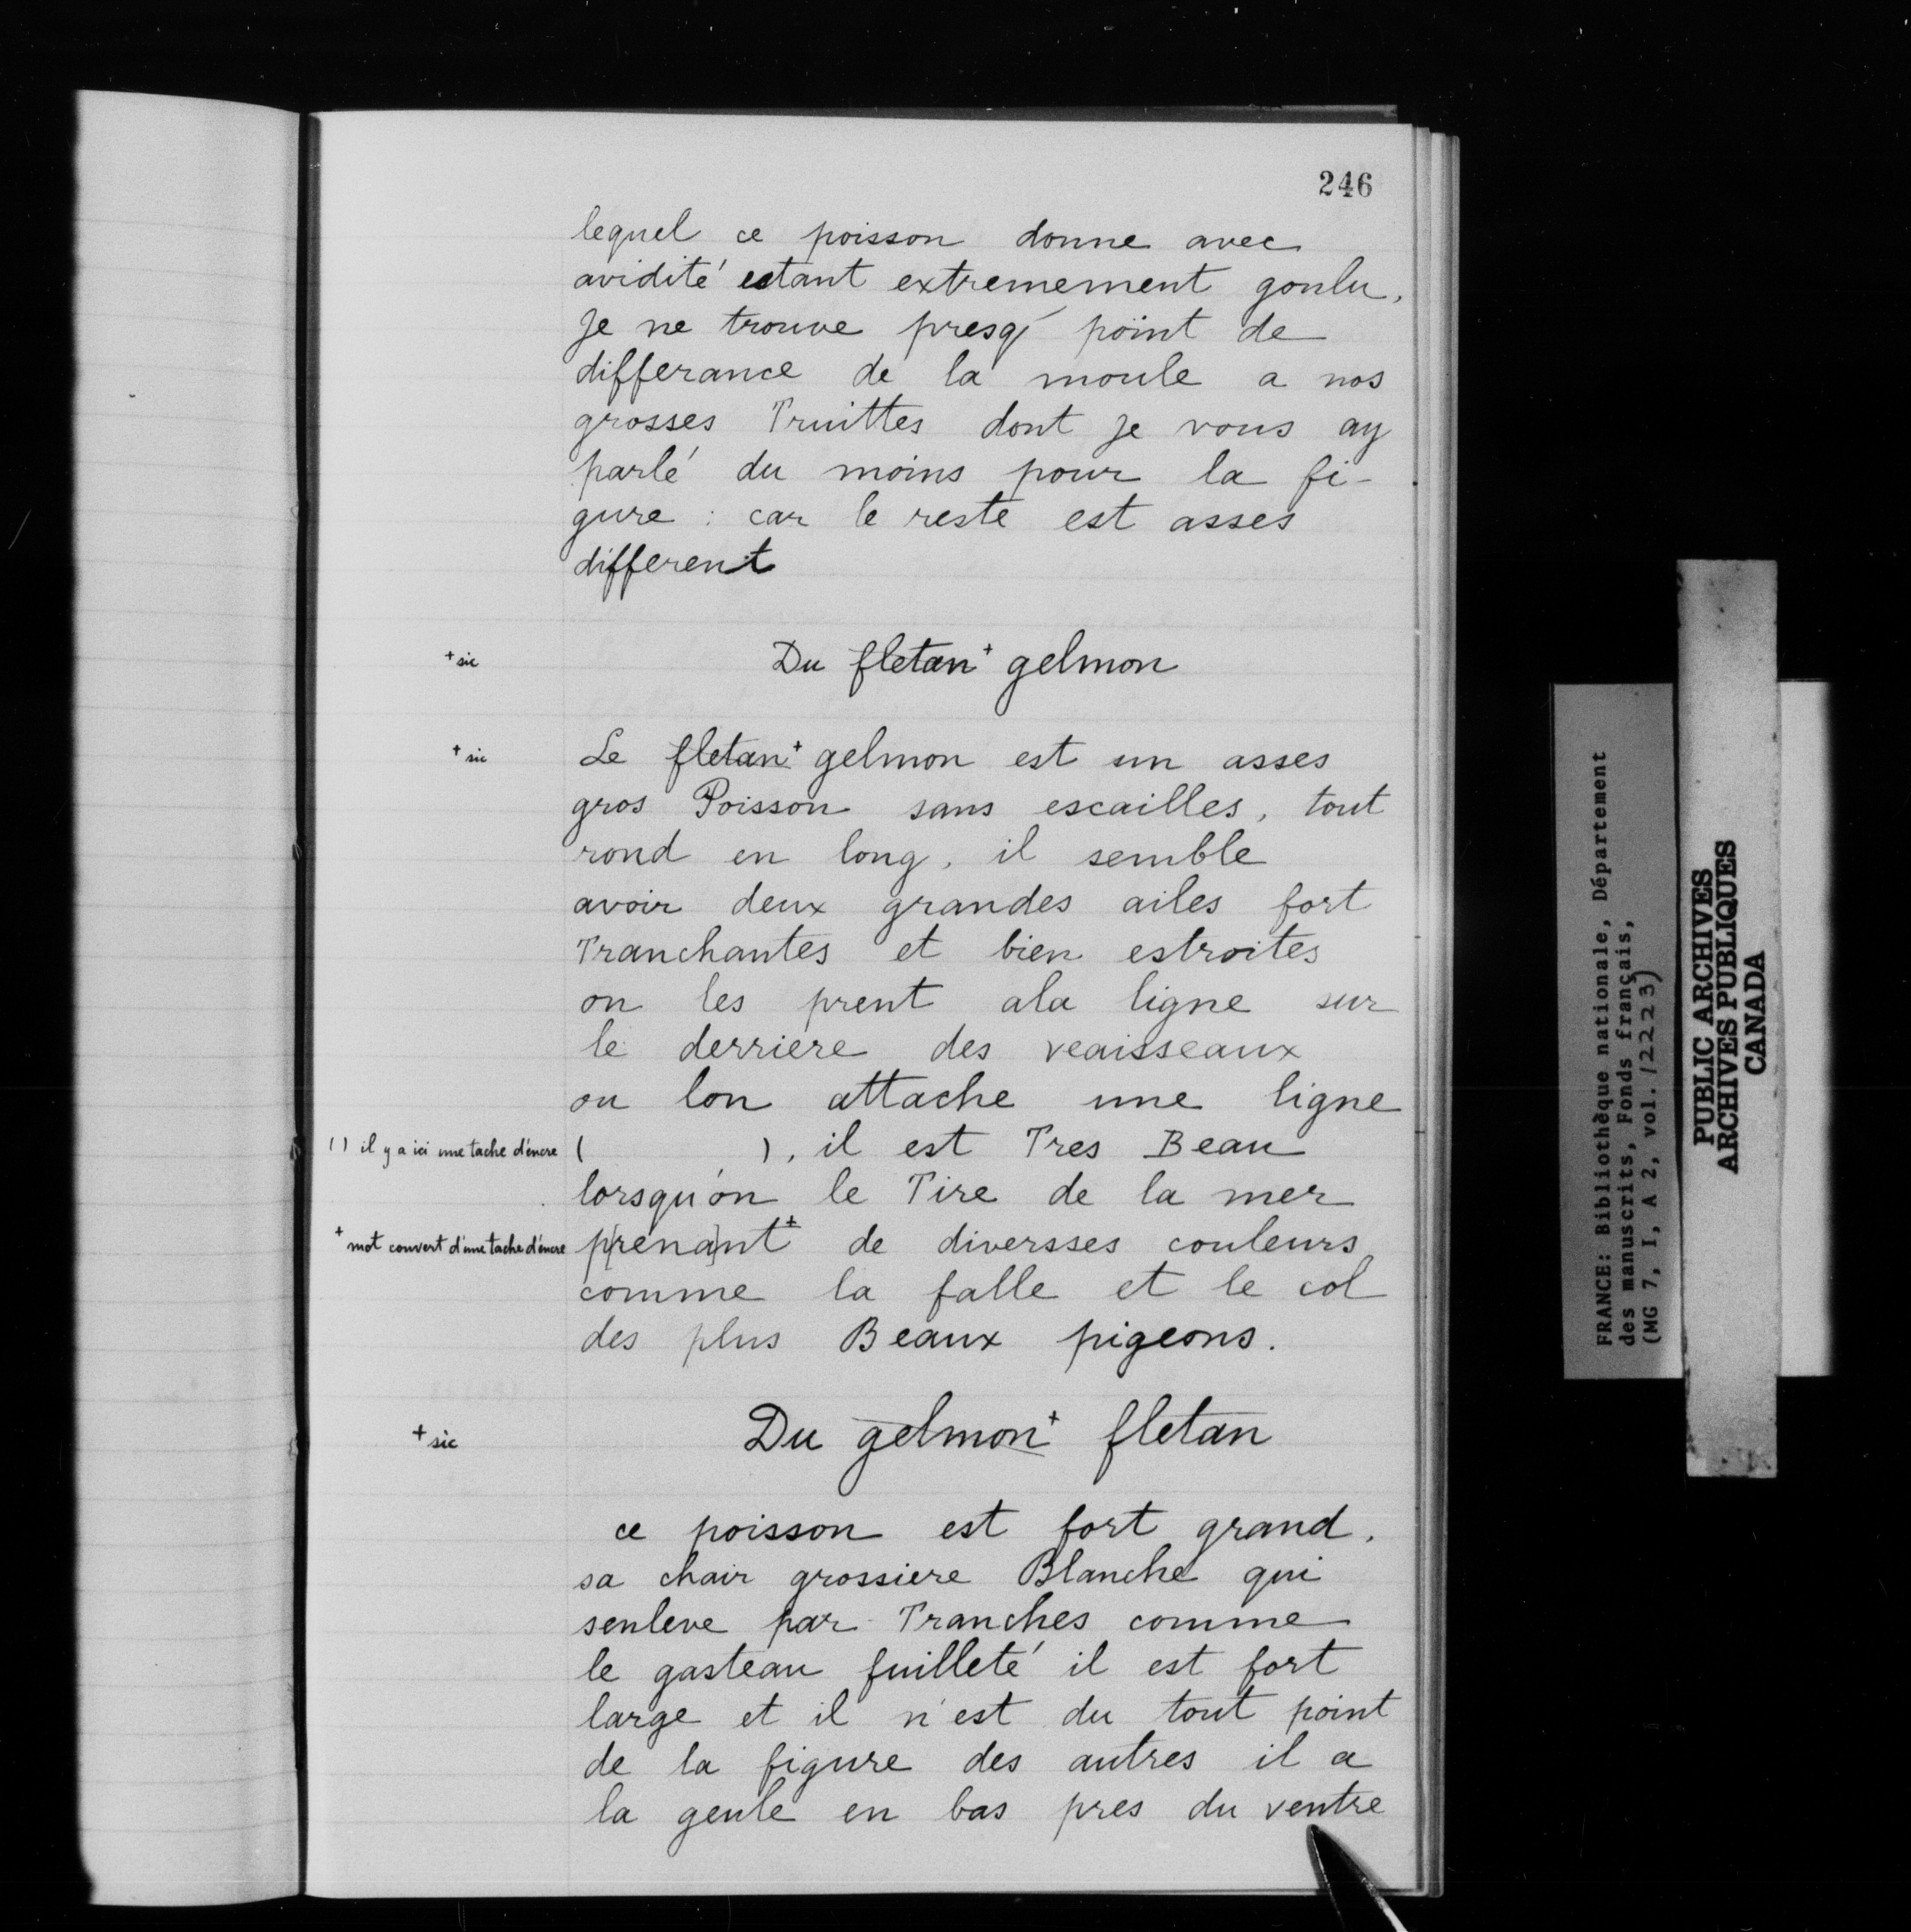 246
lequel ce poisson donne avec
avidité estant extremement goulu.
Je ne trouve presq' point de
differance de la moule a nos
grosses Truittes dont Je vous ay
parlé du moins pour la fi-
gure : car le reste est asses
different
+ sic
Du fletan+ gelmon
+ sic
Le fletan+ gelmon est un asses
gros Poisson sans escailles, tout
rond en long, il semble
avoir deux grandes ailes fort
Tranchantes et bien estroites
on les prent ala ligne sur
le derriere des veaisseaux
ou lon attache une ligne
( ) il y a ici une tache d'encre
( ), il est Tres Beau
lorsqu'on le Tire de la mer
+ mot couvert d'une tache d'encre
p[rena]nt+ de diversses couleurs
comme la falle et le col
des plus Beaux pigeons.
+ sic
Du gelmon+ fletan
ce poisson est fort grand.
sa chair grossiere Blanche qui
senleve par Tranches comme
le gasteau fuilleté il est fort
large et il n'est du tout point
de la figure des autres il a
la geule en bas pres du ventre
FRANCE: Bibliothèque nationale, Département
des manuscrits, Fonds français,
(MG 7, I, A 2, vol. 12223)
PUBLIC ARCHIVES
ARCHIVES PUBLIQUES
CANADA